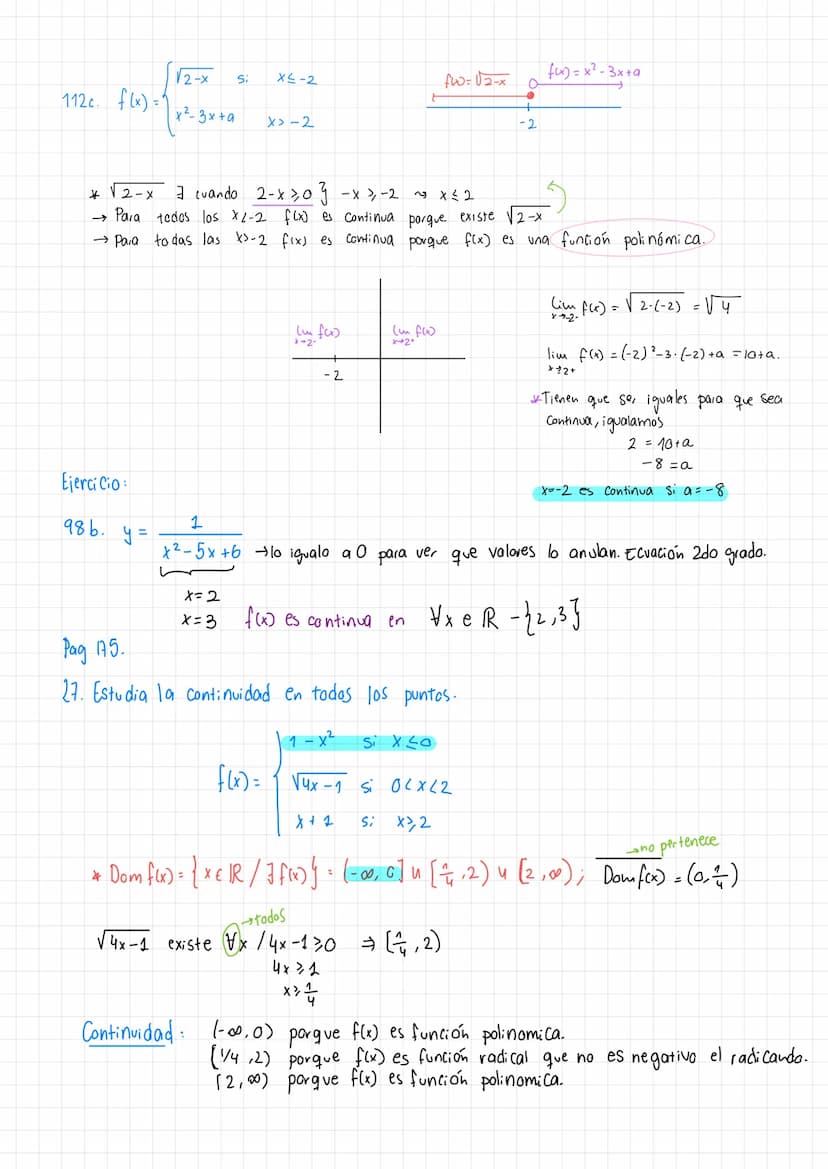 112c. f(x) = { √2-x si x ≤ -2
x² - 3x + a x > -2
f(x) = √2-x f(x) = x² - 3x + a
-2
* √2-x ∃ cuando 2-x ≥ 0 } -x ≥ -2 ⇝ x ≤ 2
→ Para todos los x < -2 f(x) es continua porque existe √2-x
→ Para todas las x > -2 f(x) es continua porque f(x) es una función polinómica.
lim f(x) x→-2⁻ lim f(x) x→-2⁺
-2
lim f(x) = √2-(-2) = √4
x→-2⁻
lim f(x) = (-2)² - 3·(-2) + a = 10 + a.
x→2+
* Tienen que ser iguales para que sea
continua, igualamos
2 = 10 + a
-8 = a
x=-2 es continua si a = -8
Ejercicio:
98b. y = 1 / x² - 5x + 6 → lo igualo a 0 para ver que valores lo anulan. Ecuación 2do grado.
x = 2
x = 3 f(x) es continua en ∀x e ℝ - {2,3}
Pag 175.
27. Estudia la continuidad en todas los puntos.
f(x) = { 1 - x² si x ≤ 0
√4x-1 si 0 < x < 2
x + 1 si x ≥ 2
→ no pertenece
* Dom f(x) = {x ∈ ℝ / ∃ f(x)} = (-∞, 0] u [1/4, 2) u [2, ∞); Dom f(x) = (0, 1/4)
→ todos
√4x-1 existe ∀x / 4x-1 ≥ 0 ⇒ [1/4, 2)
4x ≥ 1
x ≥ 1/4
Continuidad: (-∞, 0) porque f(x) es función polinomica.
[1/4, 2) porque f(x) es función radical que no es negativo el radicando.
[2, ∞) porque f(x) es función polinomica.